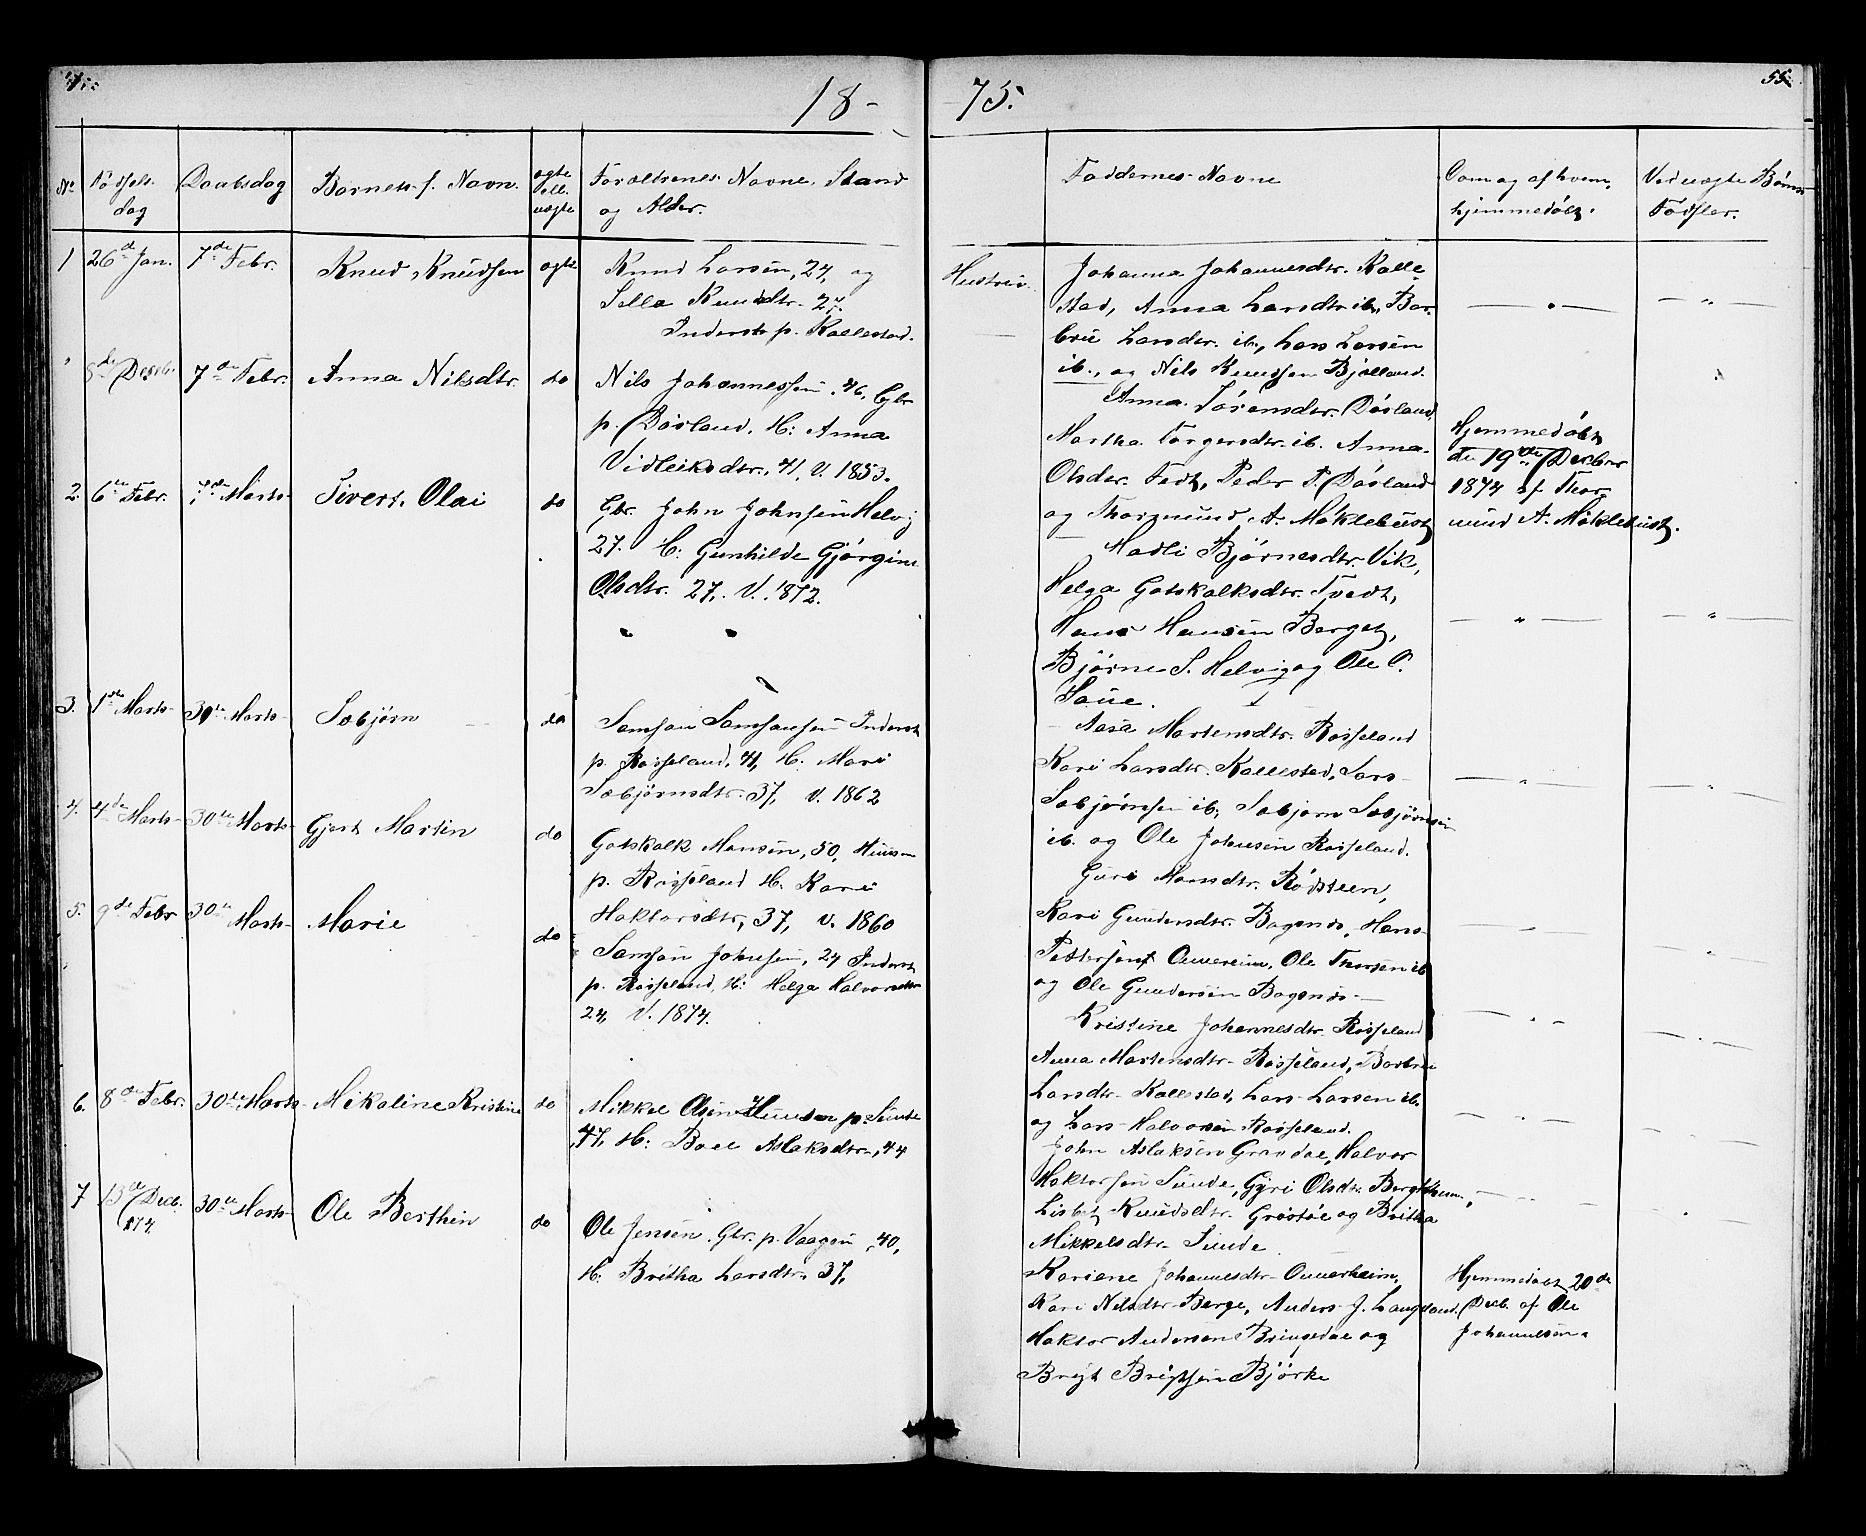 18-
75.
55
No
Fødsels-
dag
Daabsdag
Barnets f. Navn.
ægte
ell.
uægte
Forældrenes Navne, Stand
og Alder.
Faddernes Navne
Om og af hvem
hjemmedøbt.
Ved uægte Børns
Fødsler.
1
26de Jan.
7de Febr.
Knud, Knudsen
ægte
Knud Larsen, 24, og
Hustru
Sella Knudsdtr. 24.
Inderst p. Kallestad.
Johanna Johannesdtr. Kalle
stad, Anna Larsdtr. ib., Bar-
bru Larsdtr. ib., Lars Larsen
ib., og Nils Knudsen Bjelland.
8de Decb.
7de Febr.
Anna Nilsdtr.
do
Nils Johannessen, 46, Gbr
p. Døsland. H: Anna
Vidleiksdtr., 41, V. 1853.
Anna Sørensdtr. Døsland,
Martha Torgersdtr. ib. Anna
Olsdtr. Tedt, Peder P. Døsland
og Thormund A. Møklebust
Hjemmedøbt
den 19de Decbr
1874 af Thor-
mund A. Møklebust.
2.
6te Febr.
7de Marts
Sivert Olai
do
Gbr. John Johnsen Helvig
27. H: Gunhilde Gjørgine
Olsdtr. 27, V. 1872.
Madli Bjørnesdtr. Vik,
Helga Gotskalksdtr. Tvedt,
Hans Hansen Berget,
Bjørne S. Helvig og Ole O.
Saue.
3.
1ste Marts
30te Marts
Sæbjørn
do
Samson Samsonsen Inderst
p. Røsseland, 41, H. Mari
Sæbjørnsdtr. 37, V. 1862
Aasa Martensdtr. Røsseland
Kari Larsdtr. Kallestad, Lars
Sæbjørnsen ib., Sæbjørn Sæbjørnsen
ib. og Ole Johnsen Røsseland.
4.
4de Marts
30te Marts
Gjert Martin
do
Gotskalk Monsen, 50, Huusm
p. Røsseland H. Kari
Haktorsdtr, 37, V. 1860
Guri Monsdtr. Rødsteen,
Kari Gundersdtr. Bogenes, Hans
Pettersen Omereim, Ole Thorsen ib
og Ole Gundersen Bogenes
5.
9de Febr
30te Marts
Marie
do
Samson Johnsen, 24 Inderst
p. Røsseland, H: Helga Halvorsdtr
24, V. 1874.
Kristine Johannesdtr. Røsseland
Anna Martensdtr. Røsseland, Barbru
Larsdtr. Kallestad, Lars Larsen ib.
og Lars Halvorsen Røsseland.
6.
8de Febr.
30te Marts
Mikaline Kristine
do
Mikkel Olsen Huusm p. Sunde
47, H: Boel Aslaksdtr, 44
John Aslaksen Gravdal, Halvor
Haktorsen Sunde, Gyri Olsdtr. Bergthun,
Lisbet Knudsdtr. Grøstøl og Britha
Mikkelsdtr. Sunde.
7
13de Decb.
1874
30te Marts
Ole Berthin
do
Ole Jensen Gbr. p. Vaagen, 40,
H: Britha Larsdtr. 37,
Kariane Johannesdtr. Omerheim,
Kari Nilsdtr. Berge, Anders J. Langeland,
Haktor Andersen Bringedal og
Brigt Brigtsen Bjørke
Hjemmedøbt 20de
Decb. af Ole
Johannesen